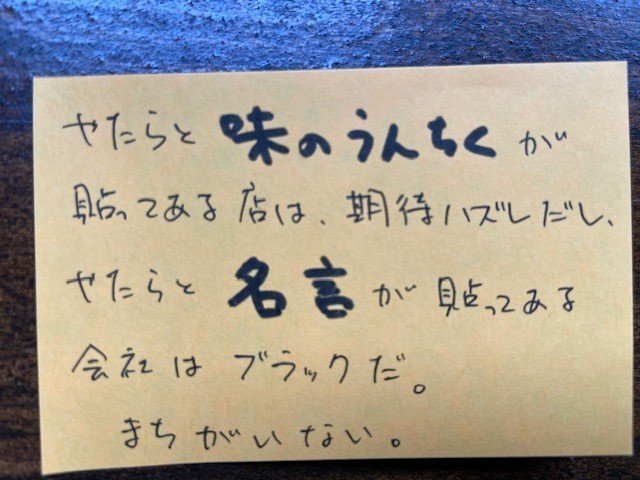 やたらと味のうんちくが
貼ってある店は、期待ハズレだし、
やたらと名言が貼ってある
会社はブラックだ。
まちがいない。